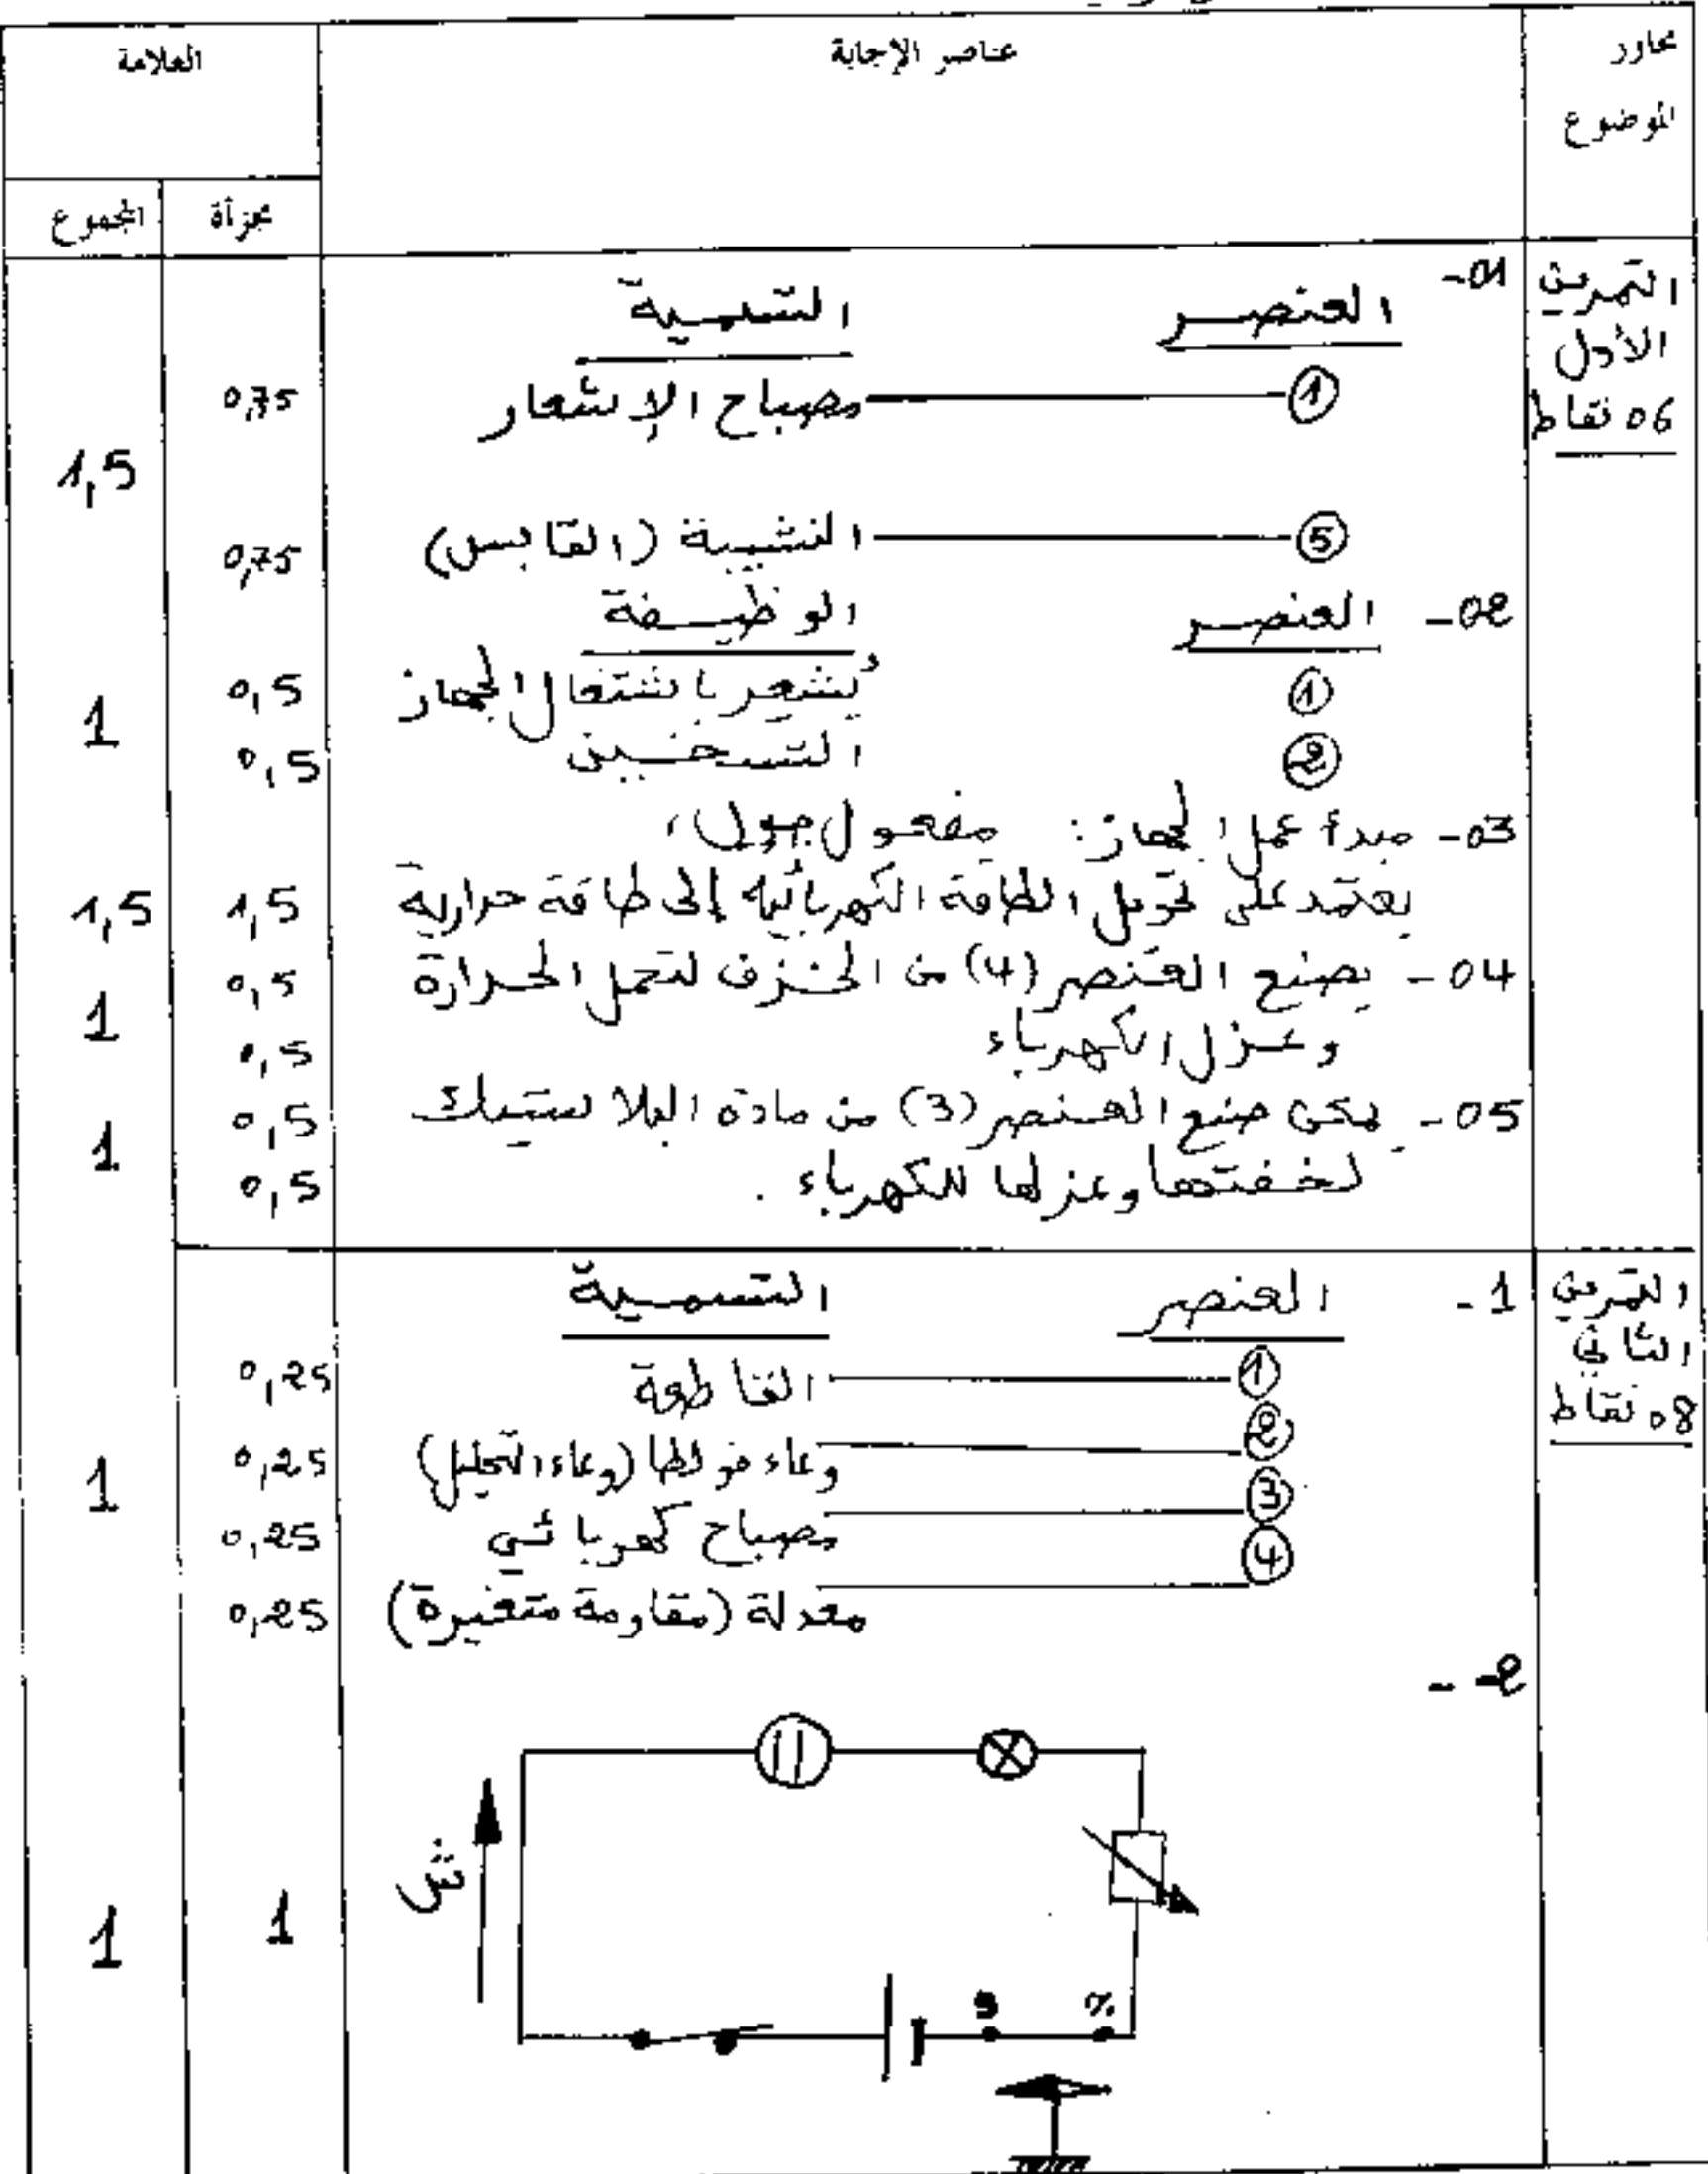 محاور الموضوع
عناصر الإجابة
العلامة
مجزأة
المجموع
التمرين الأول
06 نقاط
01-
العنصر التسمية
① مصباح الإشعار 0,75
⑤ النشبية (القابس) 0,75
1,5
02- العنصر الوظيفة
① يُشعر باشتغال الجهاز 0,5
② التسخين 0,5
1
03- مبدأ عمل الجهاز: مفعول جول،
يعتمد على تحويل الطاقة الكهربائية إلى طاقة حرارية 1,5 1,5
04- يصنع العنصر (4) من الخزف لتحمل الحرارة 0,5
وعزل الكهرباء 0,5
1
05- يمكن صنع العنصر (3) من مادة البلاستيك 0,5
لخفتها وعزلها للكهرباء . 0,5
1
التمرين الثاني
08 نقاط
1- العنصر التسمية
① القاطعة 0,25
② وعاء فولطا (وعاء التحليل) 0,25
③ مصباح كهربائي 0,25
④ معدلة (مقاومة متغيرة) 0,25
1
2-
ش
1 1